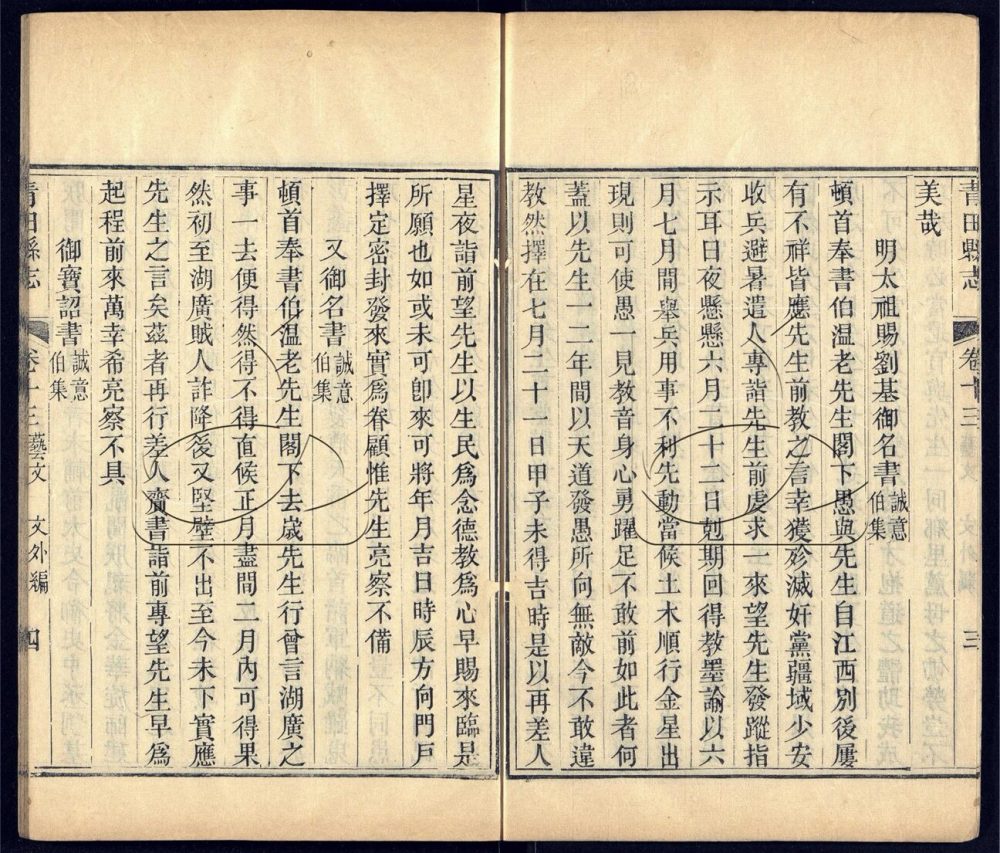 青田縣志 卷十三 三
美哉
明太祖賜劉基御名書 誠意伯集
頓首奉書伯溫老先生閣下愚與先生自江西別後屢
有不祥皆應先生前教之言幸獲殄滅奸黨疆域少安
收兵避暑遣人專詣先生前虔求一來望先生發蹤指
示耳日夜懸懸六月二十二日剋期回得教墨諭以六
月七月間舉兵用事不利先動當候土木順行金星出
現則可使愚一見教音身心勇躍足不敢前如此者何
蓋以先生一二年間以天道發愚所向無敵今不敢違
教然擇在七月二十一日甲子未得吉時是以再差人
星夜詣前望先生以生民爲念德教爲心早賜來臨是
所願也如或未可卽來可將年月吉日時辰方向門戶
擇定密封發來實爲眷顧惟先生亮察不備
又御名書 誠意伯集
頓首奉書伯溫老先生閣下去歲先生行曾言湖廣之
事一去便得然得不得直候正月盡間二月內可得果
然初至湖廣賊人詐降後又堅壁不出至今未下實應
先生之言矣茲者再行差人齎書詣前專望先生早爲
起程前來萬幸希亮察不具
御寶詔書 誠意伯集
青田縣志 卷十三 藝文 文外編 四